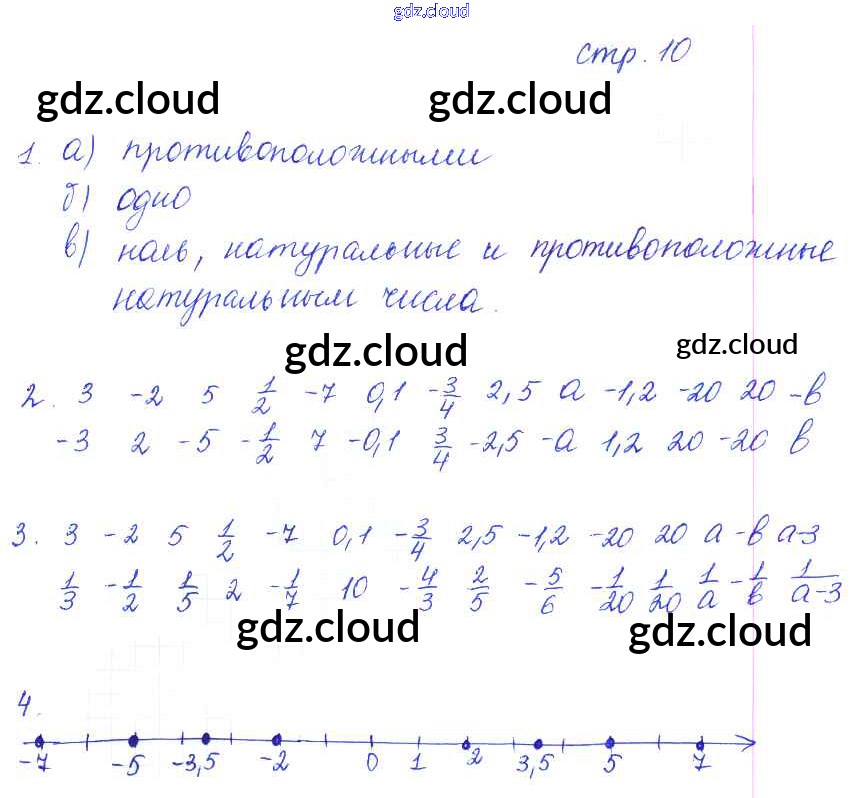 gdz.cloud
стр. 10
gdz.cloud gdz.cloud
1. а) противоположными
б) одно
в) ноль, натуральные и противоположные
натуральным числа.
gdz.cloud gdz.cloud
2. 3 -2 5 1/2 -7 0,1 -3/4 2,5 а -1,2 -20 20 -в
-3 2 -5 -1/2 7 -0,1 3/4 -2,5 -а 1,2 20 -20 в
3. 3 -2 5 1/2 -7 0,1 -3/4 2,5 -1,2 -20 20 а -в а-3
1/3 -1/2 1/5 2 -1/7 10 -4/3 2/5 -5/6 -1/20 1/20 1/а -1/в 1/(а-3)
gdz.cloud gdz.cloud
4.
-7 -5 -3,5 -2 0 1 2 3,5 5 7